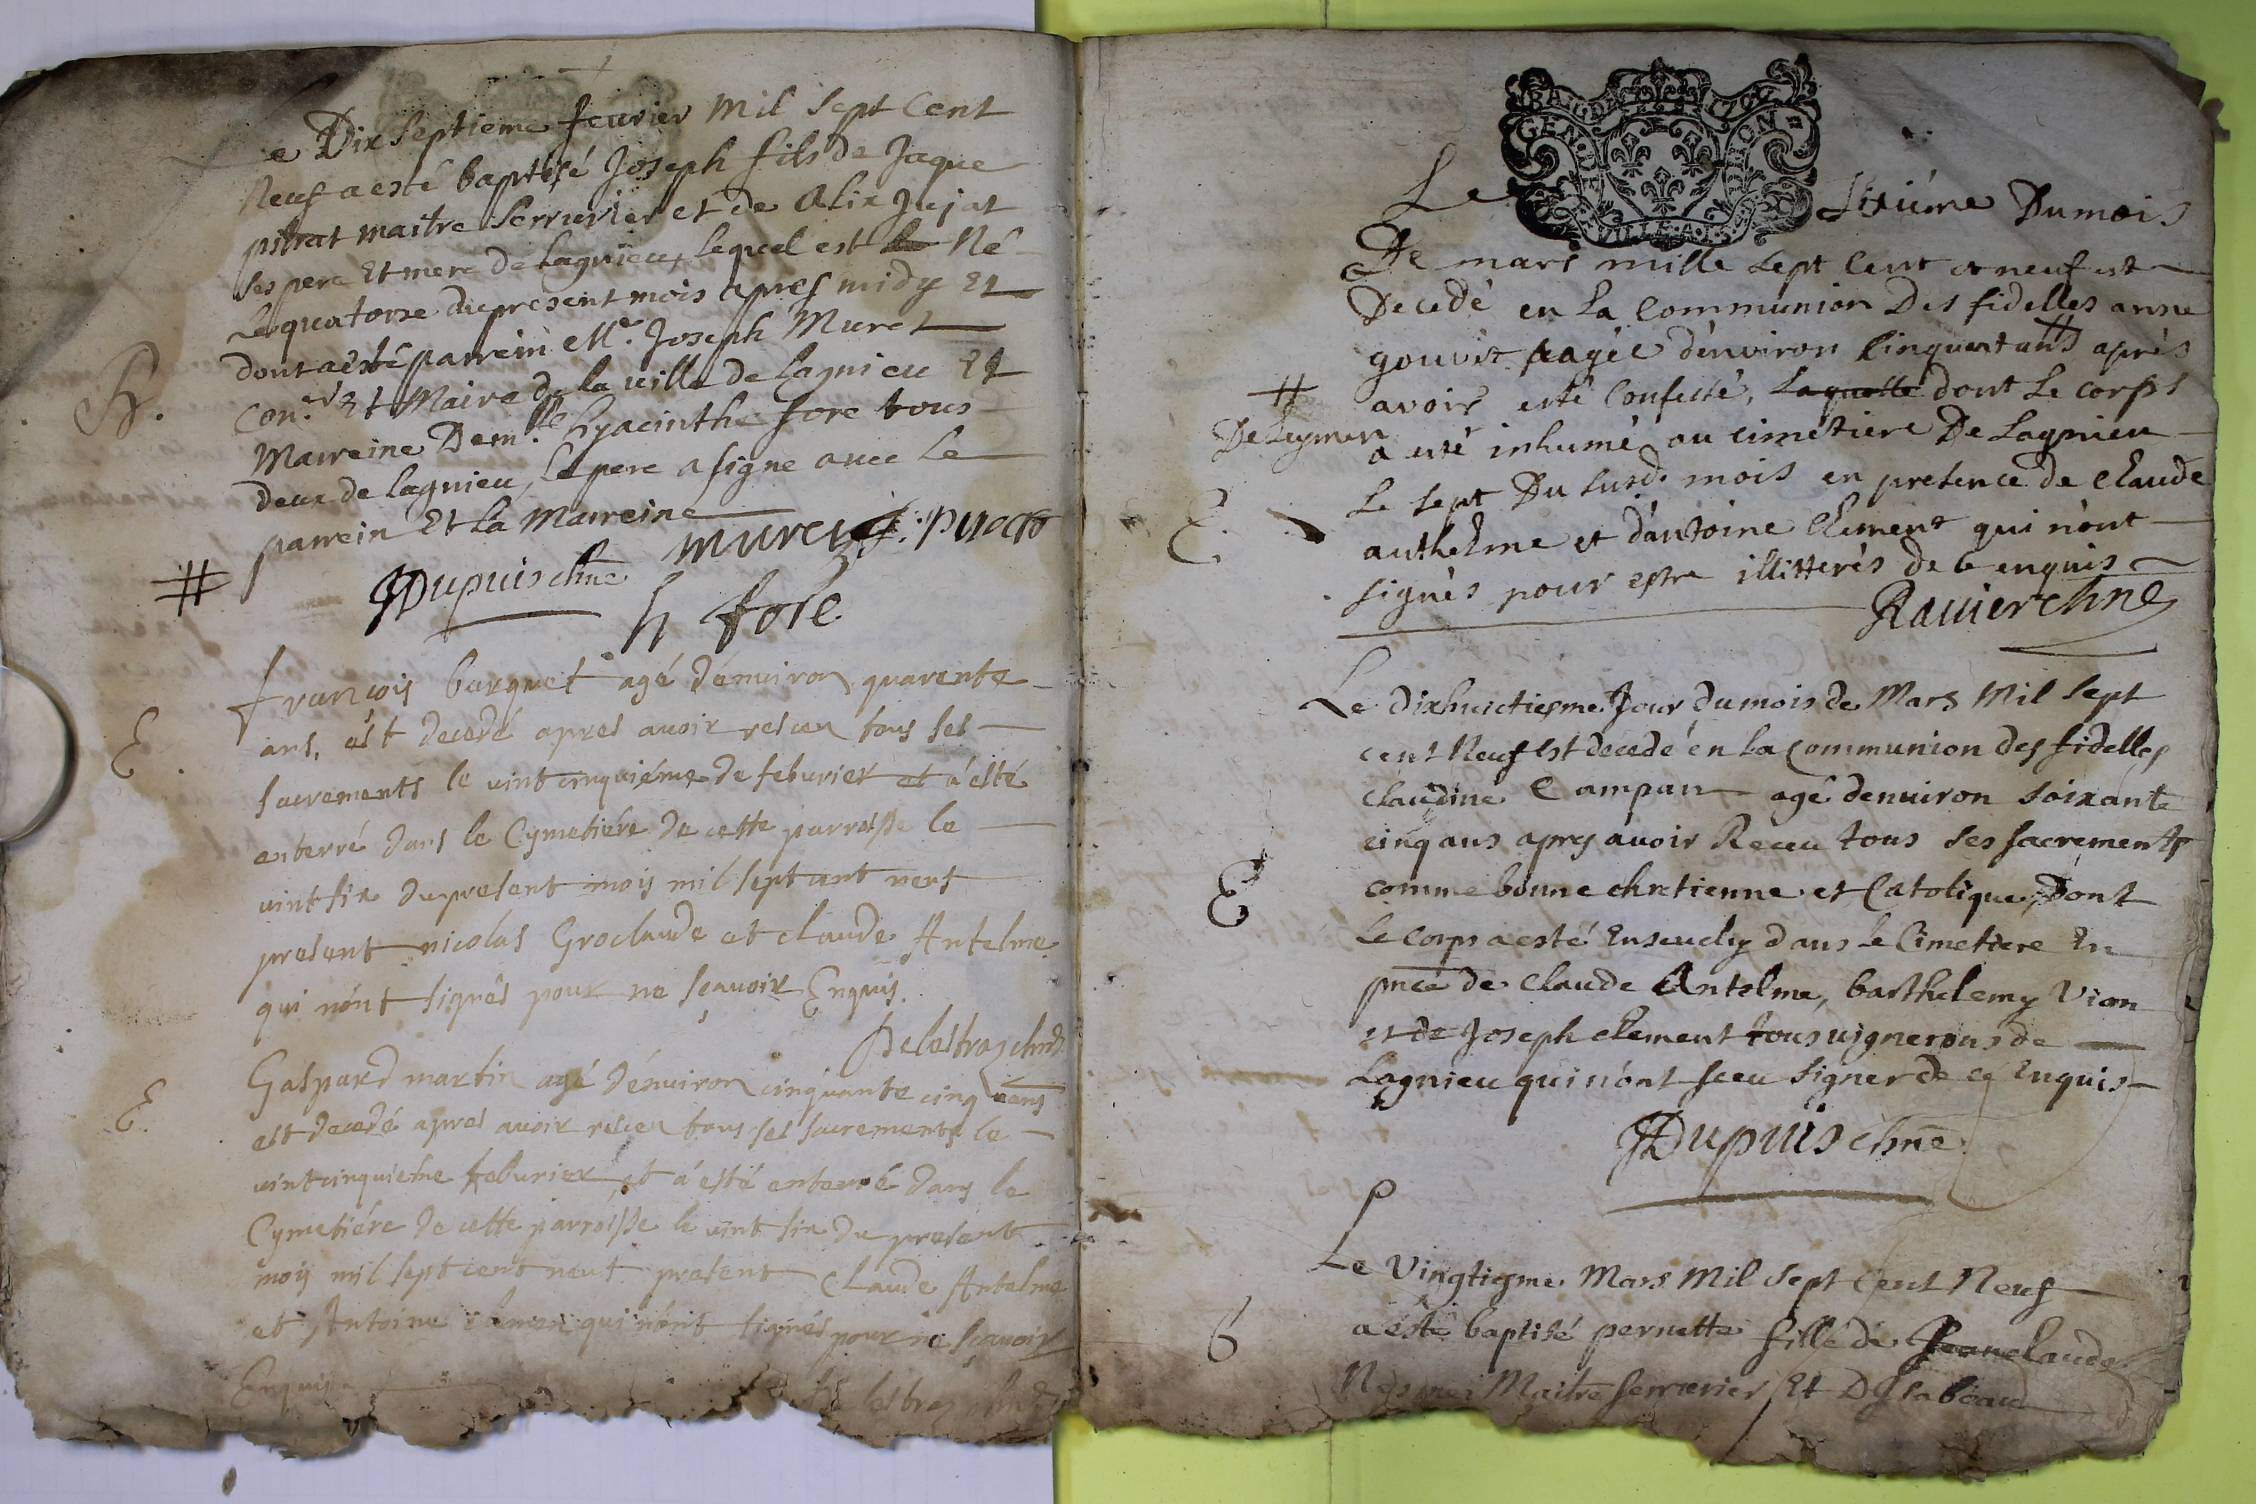 Le Dix septieme feurier Mil Sept Cent
Neuf a esté baptisé Joseph fils de Jaque
pitrat maitre Serrurier et de Alix Jujat
ses pere Et mere de Lagnieu, lequel est le Né
Le quatorze du present mois apres midy Et
dont a esté parrein Mr. Joseph Muret
Con.er Et Maire de la ville de Lagnieu Et
B.
Marreine Dem.lle hyacinthe fore tous
deux de lagnieu, le pere a signe avec le
parrein Et la Marreine
muret
#
Dupuis chne
h fore
francois burquet agé d'enuiron quarante
ans, est decedé apres auoir resceu tous ses
E
sacrements le uintcinquiéme de feburier et a esté
enterré dans le Cymetiére de cette parroisse le
uintsix du present mois mil sept cent neuf
present nicolas Groclaude et claude Antelme
qui n'ont signés pour ne sçauoir Enquis.
Gaspard martin agé d'enuiron cinquante cinq ans
E.
est decedé apres auoir resceu tous ses sacrements le
uintcinquieme feburier, et a esté enterré dans le
Cymetiére de cette parroisse le uint six du present
mois mil sept cent neuf present Claude Antelme
et Antoine clement qui n'ont signés pour ne sçauoir
Enquis
GEN DE
VILLE A L
Le Sixiéme Du mois
De mars mille sept Cent et neuf est
Decedé en la Communion Des fidelles anne
gouvit agée d'environ Cinquant ans # après
#
avoir esté Confessé, laquelle dont le corps
De Leymen
a esté inhumé au cimétiere De Lagnieu
Le sept Du susd. mois en presence de Claude
E
anthelme et d'antoine Clement qui n'ont
signés pour estre illitterés de ce enquis
Rauier chne
Le dixhuictiesme Jour du mois de Mars Mil Sept
cent Neuf est decedé en la Communion des fidelles
Claudine Campan agé denuiron soixante
cinq ans apres auoir Receu tous ses sacrements
E
comme bonne chretienne et Catolique, Dont
Le corps a esté Enseuely dans le Cimetiere En
pnce de Claude Antelme, barthelemy Vian
et de Joseph clement tous uignerons de
Lagnieu qui n'ont sceu signer de ce Enquis
Dupuis chne
P
Le Vingtiesme Mars Mil Sept Cent Neuf
6
a esté baptisé pernette fille de Jean claude
Maitre serrurier Et D Isabeau